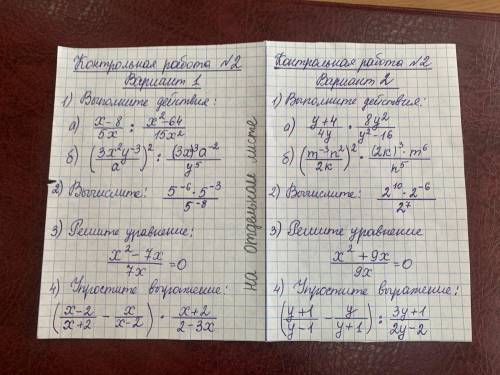 Контрольная работа №2
Вариант 1
1) Выполните действия:
а) (x-8)/(5x) : (x²-64)/(15x²)
б) ((3x²y⁻³)/a)² : ((3x)³a⁻²)/(y⁵)
2) Вычислите: (5⁻⁶·5⁻³)/(5⁻⁸)
3) Решите уравнение:
(x²-7x)/(7x)=0
4) Упростите выражение:
((x-2)/(x+2) - x/(x-2)) · (x+2)/(2-3x)
на отдельном листе
Контрольная работа №2
Вариант 2
1) Выполните действия:
а) (y+4)/(4y) · (8y²)/(y²-16)
б) ((m⁻³n²)/(2k))² · ((2k)³·m⁶)/(n⁵)
2) Вычислите: (2¹⁰·2⁻⁶)/(2⁷)
3) Решите уравнение
(x²+9x)/(9x)=0
4) Упростите выражение:
((y+1)/(y-1) - y/(y+1)) : (3y+1)/(2y-2)